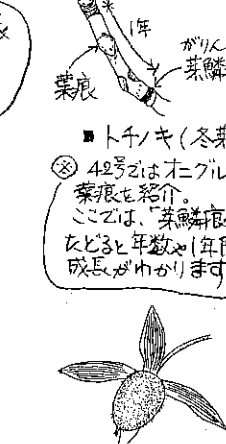 1年
がりん
葉鱗
葉痕
■ トチノキ(冬芽
※ 42号ではオニグル
葉痕を紹介。
ここでは、「葉鱗痕
たどると年数や1年間
成長がわかります